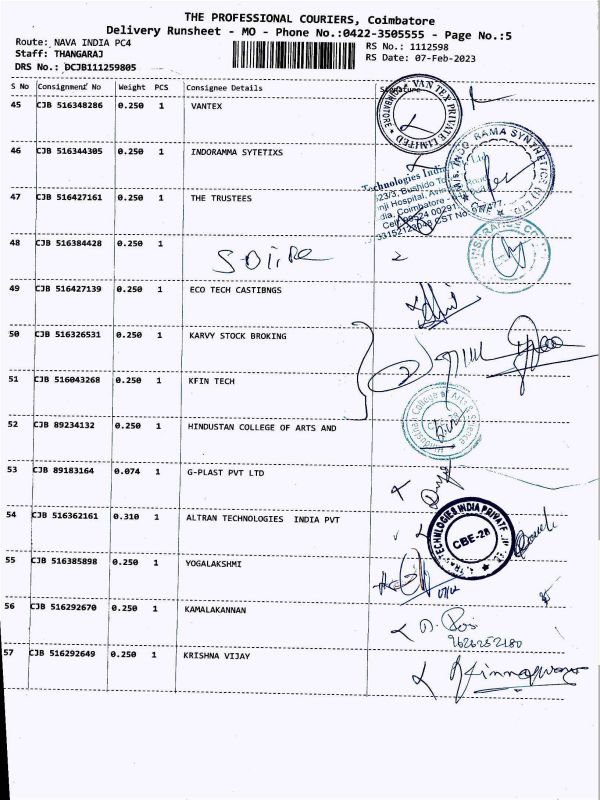 THE PROFESSIONAL COURIERS, Coimbatore
Delivery Runsheet - MO - Phone No.:0422-3505555 - Page No.:5
Route: NAVA INDIA PC4
RS No.: 1112598
Staff: THANGARAJ
RS Date: 07-Feb-2023
DRS No.: DCJB111259805
S No Consignment No Weight PCS Consignee Details Signature
45 CJB 516348286 0.250 1 VANTEX
VAN TEX PRIVATE LIMITED
46 CJB 516344305 0.250 1 INDORAMMA SYTETIXS
RAMA SYNTHETICS
47 CJB 516427161 0.250 1 THE TRUSTEES
48 CJB 516384428 0.250 1
49 CJB 516427139 0.250 1 ECO TECH CASTIBNGS
50 CJB 516326531 0.250 1 KARVY STOCK BROKING
51 CJB 516043268 0.250 1 KFIN TECH
52 CJB 89234132 0.250 1 HINDUSTAN COLLEGE OF ARTS AND
Hindusthan College of Arts & Science
53 CJB 89183164 0.074 1 G-PLAST PVT LTD
54 CJB 516362161 0.310 1 ALTRAN TECHNOLOGIES INDIA PVT
CBE-28
55 CJB 516385898 0.250 1 YOGALAKSHMI
56 CJB 516292670 0.250 1 KAMALAKANNAN
9626252180
57 CJB 516292649 0.250 1 KRISHNA VIJAY